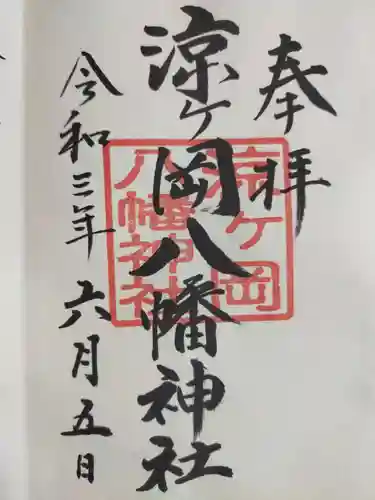 奉拝
涼ケ岡八幡神社
涼ケ岡
八幡神社
令和三年六月五日